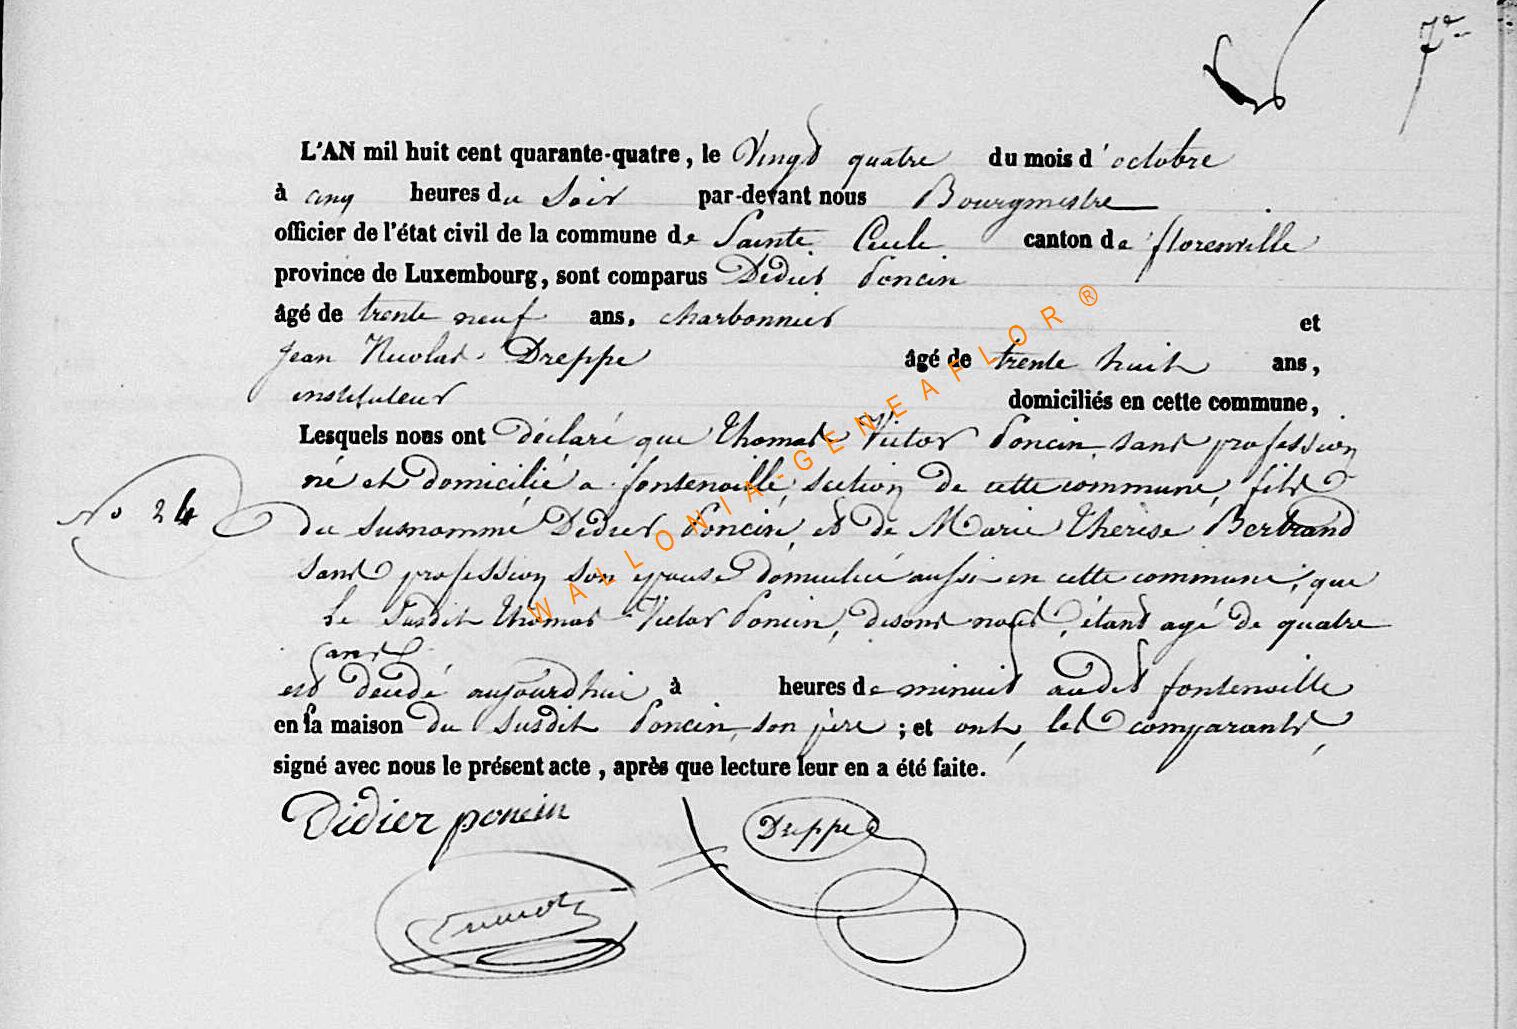 7e
L'AN mil huit cent quarante-quatre, le Vingt quatre du mois d'octobre
à cinq heures du Soir par-devant nous Bourgmestre
officier de l'état civil de la commune de Sainte Cecile canton de florenville
province de Luxembourg, sont comparus Didier Poncin
âgé de trente neuf ans, charbonnier et
Jean Nicolas Dreppe âgé de trente huit ans,
instituteur domiciliés en cette commune,
Lesquels nous ont déclaré que Thomas Victor Poncin, sans profession
né et domicilié a fontenoille, section de cette commune, fils
No 24
du susnommé Didier Poncin, et de Marie Therese Bertrand
sans profession son epouse domiciliée aussi en cette commune; que
le susdit Thomas Victor Poncin, disons nous, étant agé de quatre
ans
est decédé aujourd'hui à heures de minuit audit fontenoille
en la maison du susdit Poncin, son père ; et ont les comparants,
signé avec nous le présent acte, après que lecture leur en a été faite.
Didier poncin
Dreppe
WALLONIA-GENEAFLOR®